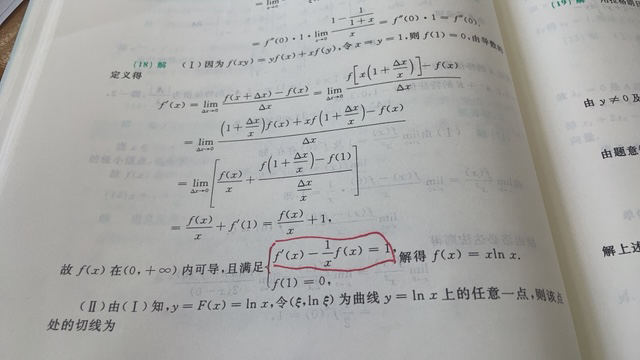 = f″(0)·1·lim_{x→0} (1 − 1/(1+x))/x = f″(0)·1 = f″(0).
(18) 解 (Ⅰ)因为 f(xy) = yf(x) + xf(y),令 x = y = 1,则 f(1) = 0,由导数的
定义得
f′(x) = lim_{Δx→0} (f(x+Δx) − f(x))/Δx = lim_{Δx→0} (f[x(1 + Δx/x)] − f(x))/Δx
= lim_{Δx→0} ((1 + Δx/x)f(x) + xf(1 + Δx/x) − f(x))/Δx
= lim_{Δx→0} [f(x)/x + (f(1 + Δx/x) − f(1))/(Δx/x)]
= f(x)/x + f′(1) = f(x)/x + 1,
故 f(x) 在(0, +∞) 内可导,且满足 { f′(x) − (1/x)f(x) = 1, f(1) = 0, 解得 f(x) = xln x.
(Ⅱ)由(Ⅰ)知,y = F(x) = ln x,令(ξ, ln ξ) 为曲线 y = ln x 上的任意一点,则该点
处的切线为
由 y ≠ 0 及
由题意
解上述